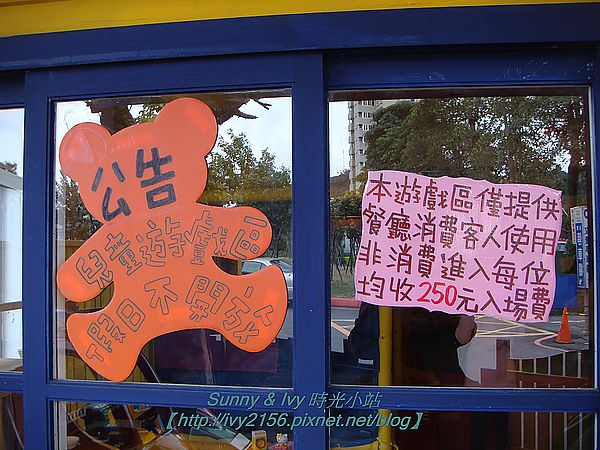 公告
兒童遊戲區
假日不開放
本遊戲區僅提供
餐廳消費客人使用
非消費進入每位
均收250元入場費
Sunny & Ivy 時光小站
【http://ivy2156.pixnet.net/blog】